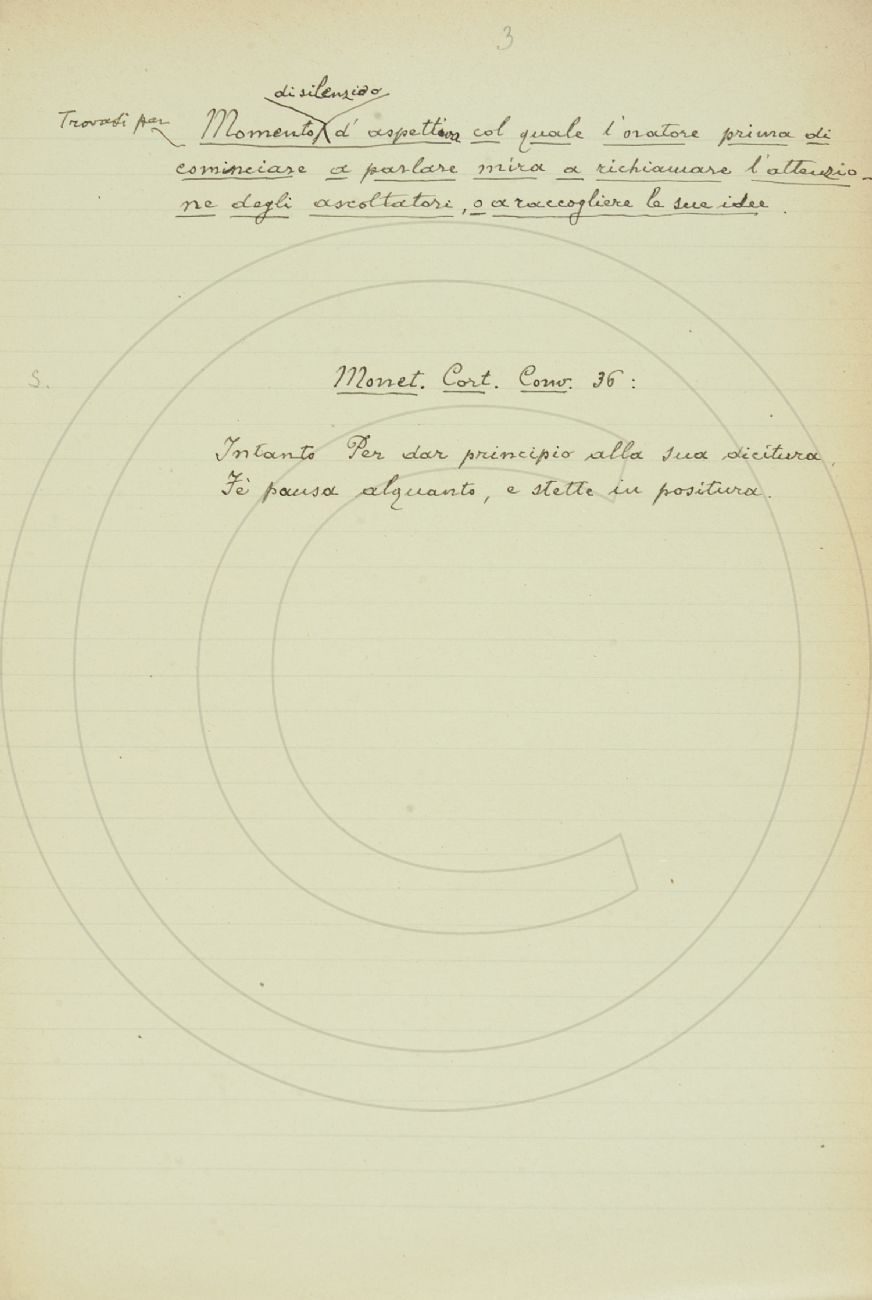 3
di silenzio o
Trovasi per Momento d' aspettiva col quale l'oratore prima di
cominciare a parlare mira a richiamare l'attenzio-
ne degli ascoltatori, o a raccogliere le sue idee.
S. Monet. Cort. Conv. 36:
Intanto Per dar principio alla sua dicitura,
Fè pausa alquanto, e stette in positura.